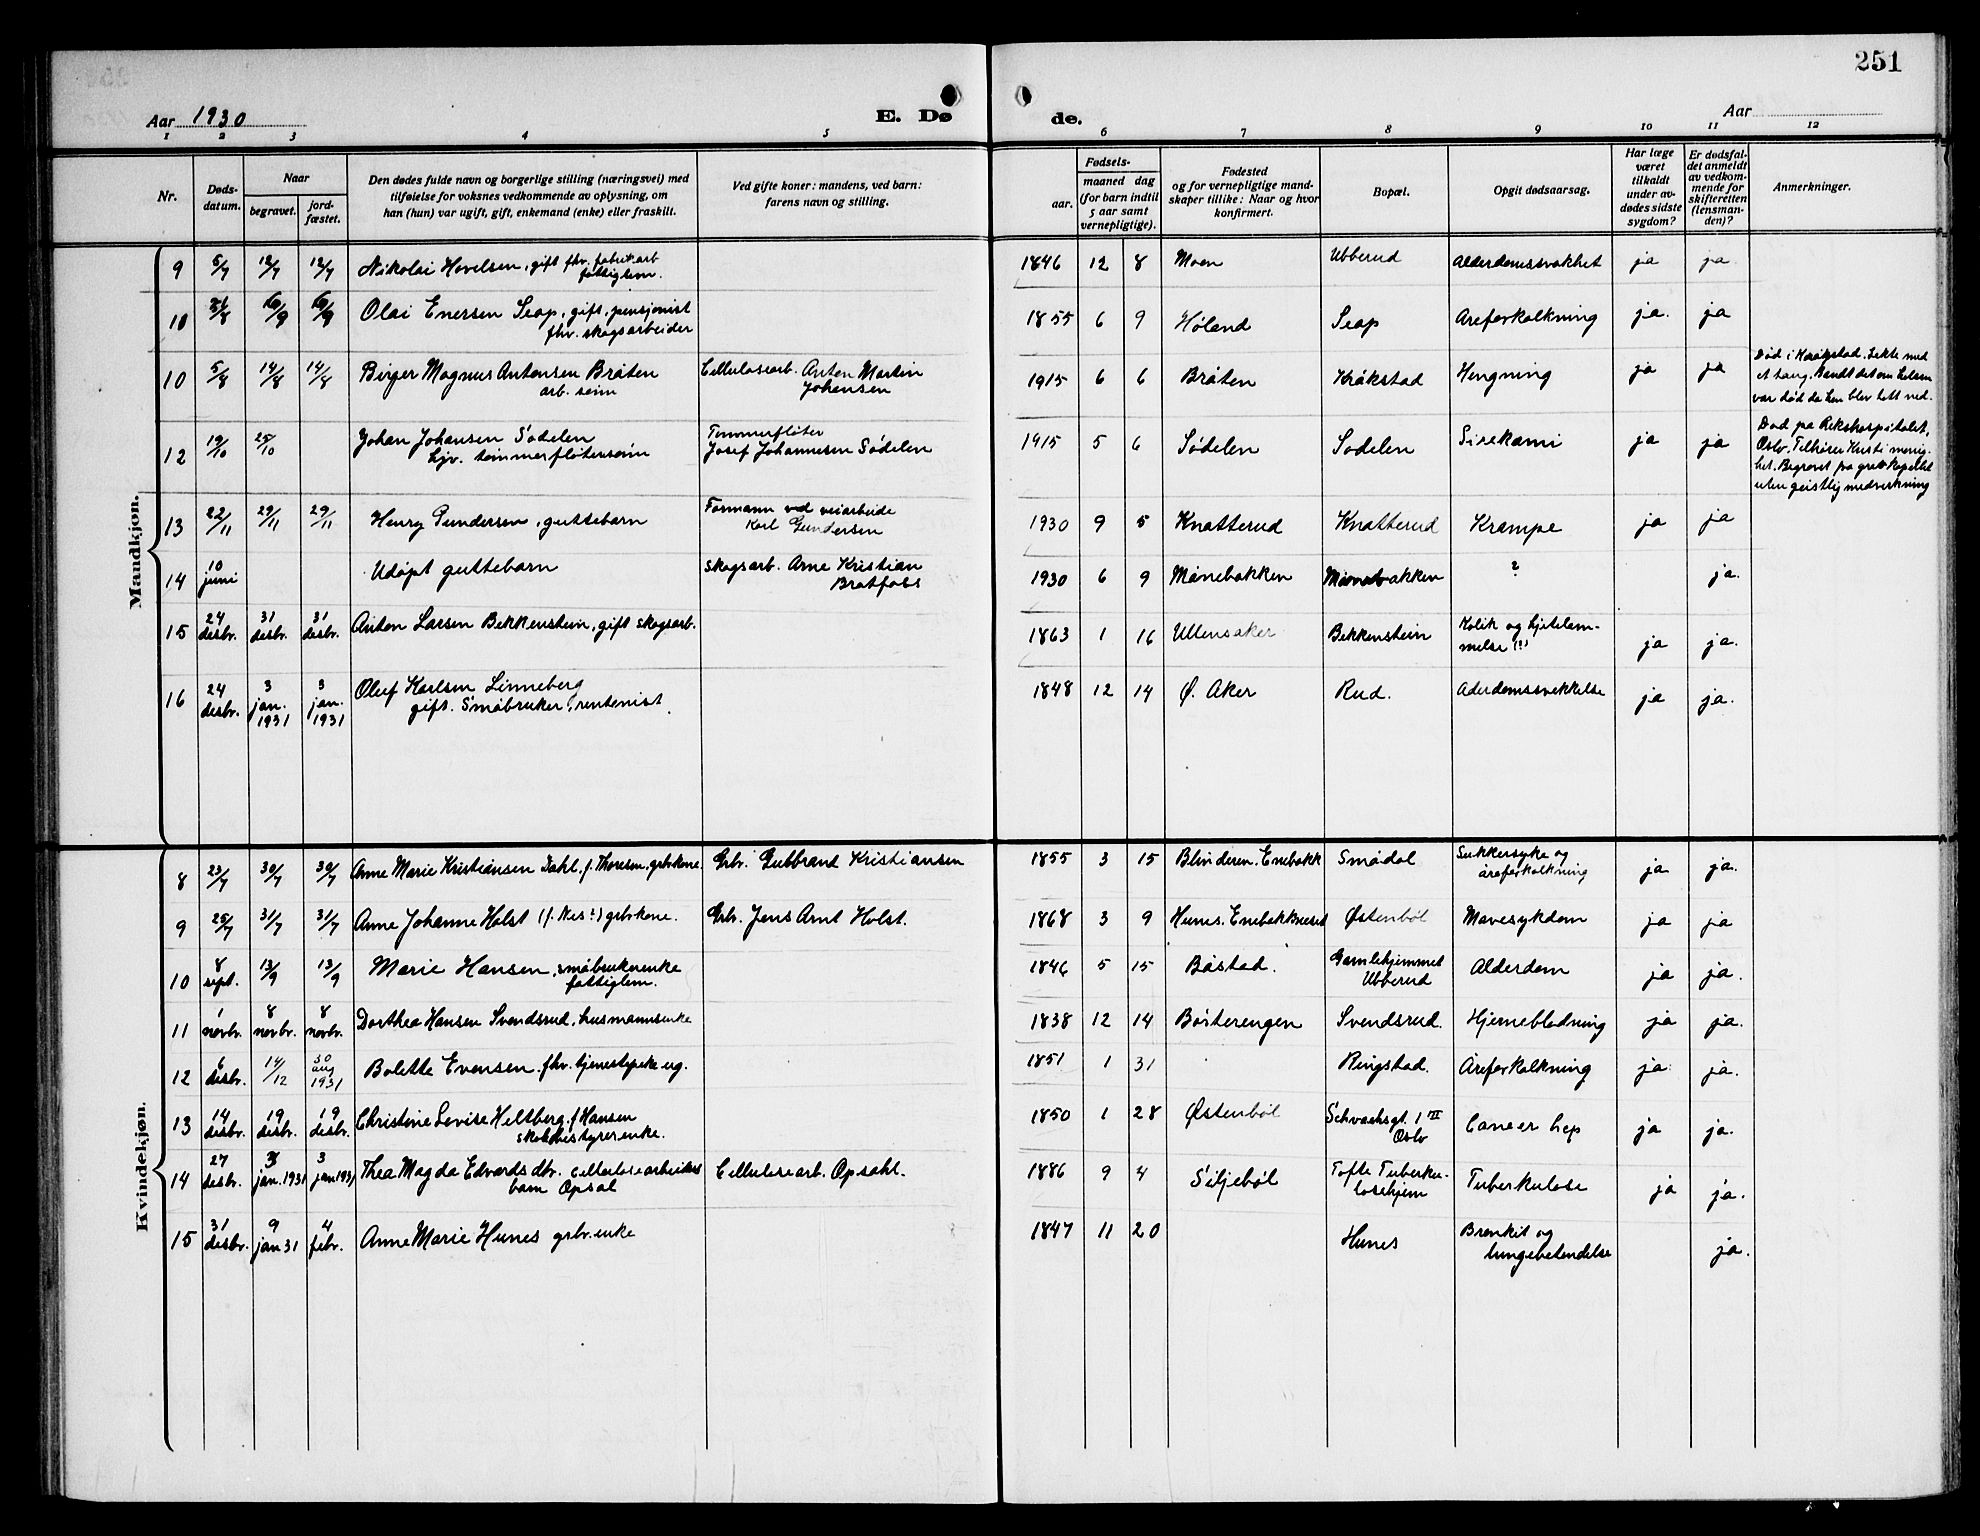 251
Aar 1930
E. Dø
de.
Aar
1 2 3 4 5 6 7 8 9 10 11 12
Nr.
Døds-
datum.
Naar
begravet.
jord-
fæstet.
Den dødes fulde navn og borgerlige stilling (næringsvei) med
tilføielse for voksnes vedkommende av oplysning, om
han (hun) var ugift, gift, enkemand (enke) eller fraskilt.
Ved gifte koner: mandens, ved barn:
farens navn og stilling.
Fødsels-
aar.
maaned dag
(for barn indtil
5 aar samt
vernepligtige).
Fødested
og for vernepligtige mand-
skaper tillike: Naar og hvor
konfirmert.
Bopæl.
Opgit dødsaarsag.
Har læge
været
tilkaldt
under av-
dødes sidste
sygdom?
Er dødsfal-
det anmeldt
av vedkom-
mende for
skifteretten
(lensman-
den)?
Anmerkninger.
Mandkjøn.
9 5/7 12/7 12/7 Nikolai Hovelsen, gift fhv. fabrikarb
fattiglem. 1846 12 8 Moen Ubberud Alderdomssvakhet ja ja
10 /8 /9 /9 Olai Enersen Seap, gift, pensjonist
fhv. skogsarbeider 1855 6 9 Høland Seap Areforkalkning ja. ja
10 5/8 14/8 14/8 Birger Magnus Antonsen Bråten
arb. sønn
Cellulosearb. Anton Martin
Johansen
1915 6 6 Bråten Kråkstad Hengning ja ja
Død i Kråkstad. Lekte med
et taug. Sandt det om halsen
var død da han blev tatt ned.
12 19/10 25/10 Johan Johansen Sødelen
tømmerfløtersønn
Tømmerfløter
Josef Johannesen Sødelen
1915 5 6 Sødelen Sødelen ja ja
Død på Rikshospitalet,
Oslo. Tilhører menig-
het. Begravet fra gravkapellet
uten geistlig medvirkning
13 22/11 29/11 29/11 Henry Gundersen, guttebarn
Formann ved veiarbeide
Karl Gundersen
1930 9 5 Knatterud Knatterud Krampe ja ja
14 10
juni Udøpt guttebarn
skogsarb. Arne Kristian
Bratfoss
1930 6 9 Månebakken Månebakken ? ja.
15 24
desbr. 31
desbr. 31
desbr. Anton Larsen Bekkenstein, gift skogsarb.
1863 1 16 Ullensaker Bekkenstein Kolik og hjertelam-
melse (?) ja ja.
16 24
desbr. 3
jan.
1931 3
jan.
1931 Oluf Karlsen Linneberg
gift. Småbruker, rentenist.
1848 12 14 Ø. Aker Rud. Aderdomssvekkelse ja ja.
Kvindekjøn.
8 23/7 30/7 30/7 Anne Marie Kristiansen Dahl, f. Thoresen, grbrkone. Grb. Gubbrand Kristiansen
1855 3 15 Blinderen. Enebakk Smådal Sukkersyke og
åreforkalkning ja ja.
9 25/7 31/7 31/7 Anne Johanne Holst (f. Nes?) grbrkone. Grb. Jens Arnt Holst.
1868 3 9 Hunes. Enebakkneset Østenbøl Mavesykdom ja ja
10 8
sept. 13/9 13/9 Marie Hansen, småbrukerenke
fattiglem.
1846 5 15 Båstad. Gamlehjemmet
Ubberud Alderdom ja ja.
11 1
novbr. 8
novbr. 8
novbr. Dorthea Hansen Svendsrud, husmannsenke
1838 12 14 Børterengen Svendsrud. Hjerneblødning ja ja.
12 6
desbr. 14/12 30
aug
1931 Bolette Evensen, fhv. tjenestepike ug.
1851 1 31 Ringstad. Åreforkalkning ja ja.
13 14
desbr. 19
desbr. 19
desbr. Christine Lovise Heltberg. f Hansen
skolebestyrerenke.
1850 1 28 Østenbøl Schwachsgt. 1 III
Oslo Cancer hep ja ja.
14 27
desbr. 3
jan. 1931 3
jan 1931 Thea Magda Edvardsdtr. cellulosearbeiders
barn Opsal Cellulosearb. Opsahl.
1886 9 4 Siljebøl Tofte Tuberku-
losehjem Tuberkulose ja ja.
15 31
desbr. 9
jan 31 4
febr. Anne Marie Hunes grbr.enke
1847 11 20 Hunes Bronkit og
lungebetendelse ja.